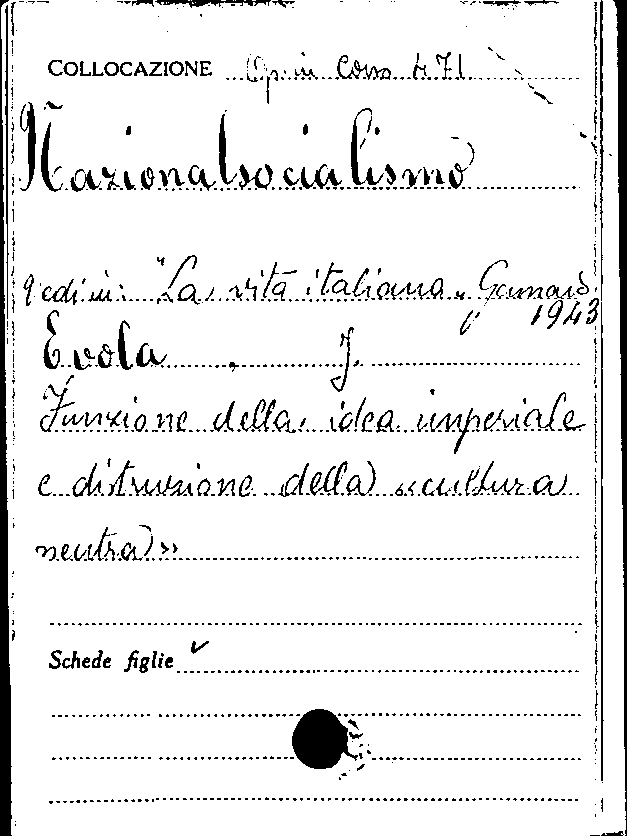 COLLOCAZIONE Op. in Cons 471
Nazionalsocialismo
Vedi in: "La vita italiana" Gennaio
1943
Evola, J.
Funzione della idea imperiale
e distruzione della «cultura
neutra»
Schede figlie ✓